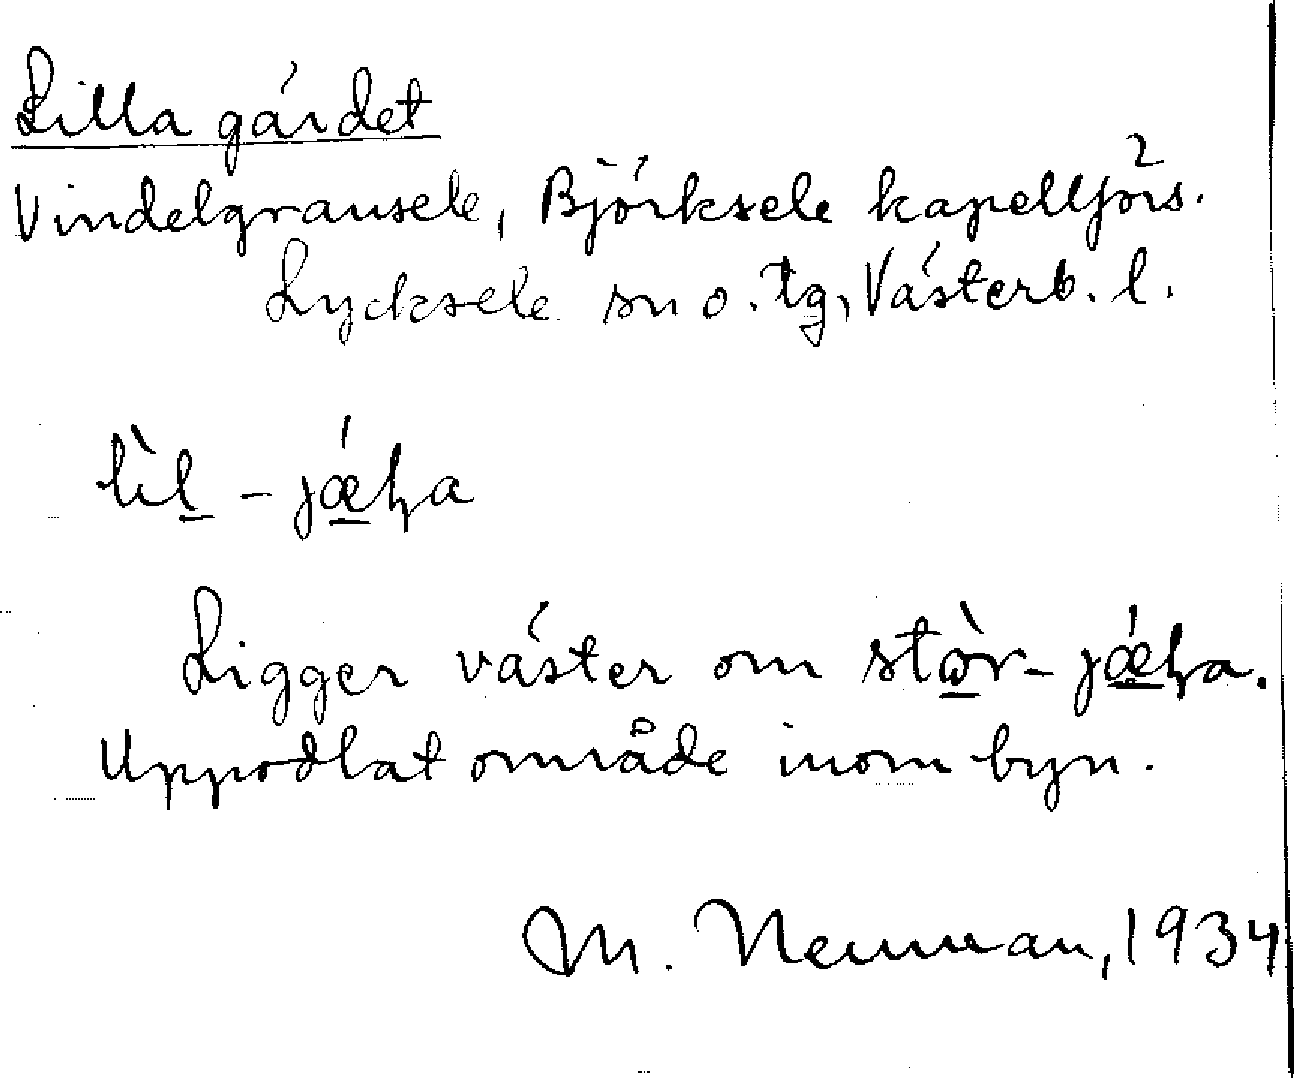 Lilla gärdet
Vindelgransele, Björksele kapellförs.
Lycksele sn o. tg, Västerb. l.
lìl - jǽɧa
Ligger väster om stòr - jǽɧa.
Uppodlat område inom byn.
M. Neuman, 1934